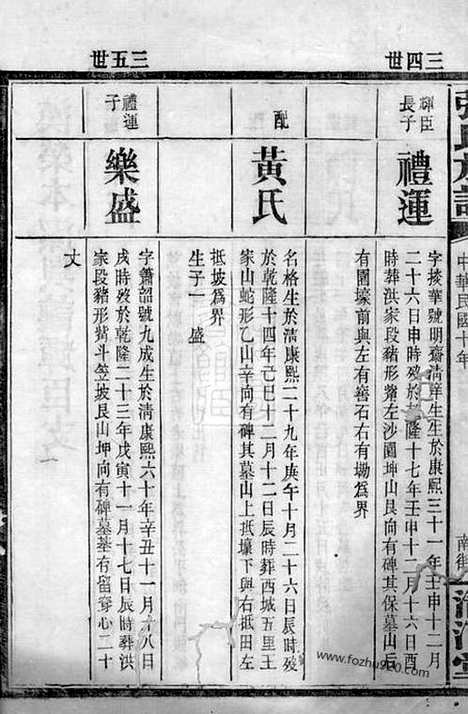 三四世
輝臣長子
禮運
字掞華號明齋清庠生生於康熙三十一年壬申十二月
二十六日申時殁於乾隆十七年壬申十二月十六日酉
時葬洪家段豬形嘴左沙園坤山艮向有碑其保墓山后
有圍壕前與左有砉石右有坳為界
配
黃氏
名格生於清康熙二十九年庚午十月二十六日辰時殁
於乾隆十四年己巳十二月十二日辰時葬西城五里王
家山蛇形乙山辛向有碑其墓山上抵壤下與右抵田左
抵坡為界
生子一 盛
三五世
禮運子
樂盛
字簫韶號九成生於清康熙六十年辛丑十一月十八日
戌時殁於乾隆二十三年戊寅十一月十七日辰時葬洪
家段豬形觜斗笠坡艮山坤向有碑墓基有留穿心二十
丈
中華民國十年
南街
清河堂
www.fozhu900.com